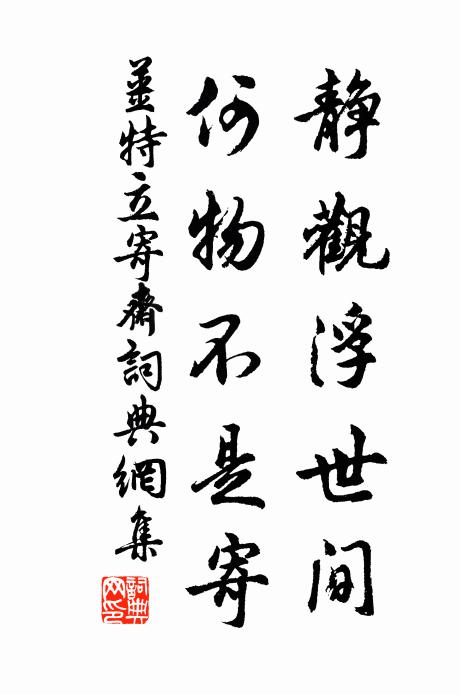 静觀浮世间
何物不是寄
姜特立寄齋詞典網集
詞典网印